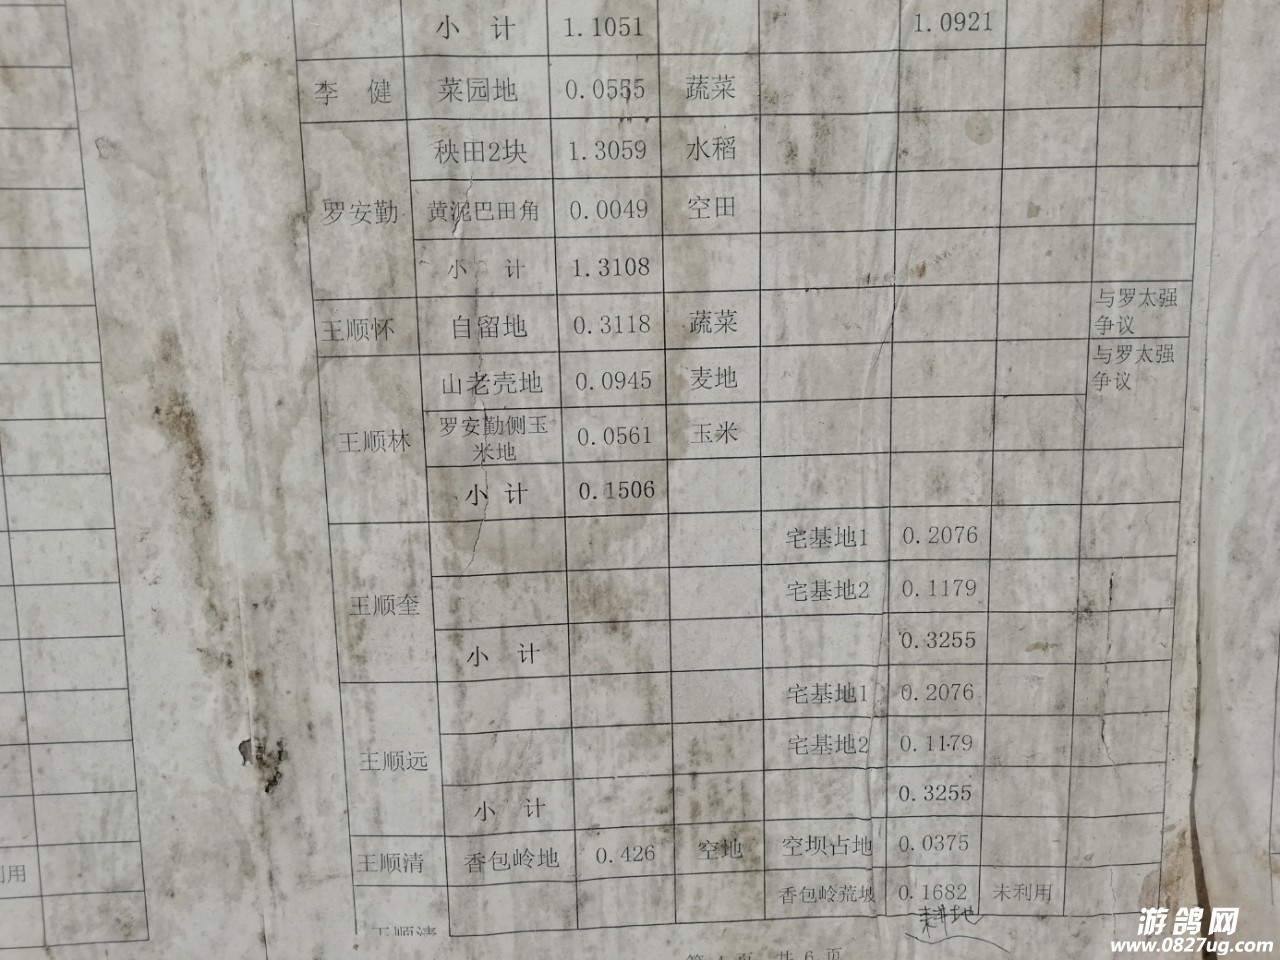 小 计 1.1051 1.0921
李 健 菜园地 0.0555 蔬菜
秧田2块 1.3059 水稻
罗安勤 黄泥巴田角 0.0049 空田
小 计 1.3108
王顺怀 自留地 0.3118 蔬菜 与罗太强
争议
山老壳地 0.0945 麦地 与罗太强
争议
王顺林 罗安勤侧玉
米地 0.0561 玉米
小 计 0.1506
宅基地1 0.2076
王顺奎 宅基地2 0.1179
小 计 0.3255
宅基地1 0.2076
王顺远 宅基地2 0.1179
小 计 0.3255
王顺清 香包岭地 0.426 空地 空坝占地 0.0375
香包岭荒坡 0.1682 未利用
耕地
王顺清
利用
第4页 共6页
游鸽网
www.0827ug.com